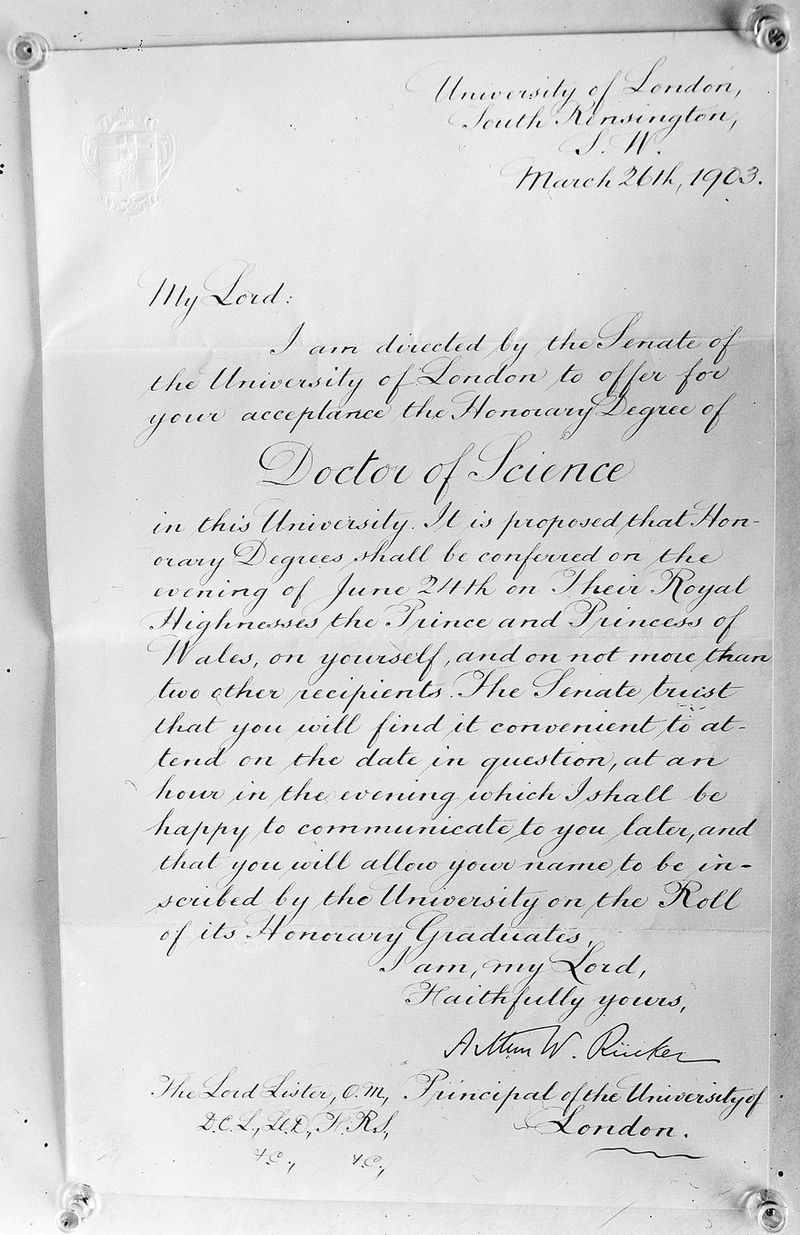 University of London,
South Kensington,
S. W.
March 26th, 1903.
My Lord:
I am directed by the Senate of
the University of London to offer for
your acceptance the Honorary Degree of
Doctor of Science
in this University. It is proposed that Hon-
orary Degrees shall be conferred on the
evening of June 24th on Their Royal
Highnesses the Prince and Princess of
Wales, on yourself, and on not more than
two other recipients. The Senate trust
that you will find it convenient to at-
tend on the date in question, at an
hour in the evening which I shall be
happy to communicate to you later, and
that you will allow your name to be in-
scribed by the University on the Roll
of its Honorary Graduates.
I am, my Lord,
Faithfully yours,
Arthur W. Rücker
Principal of the University of
London.
The Lord Lister, O.M.,
D.C.L., LL.D., F.R.S.,
&c., &c.,